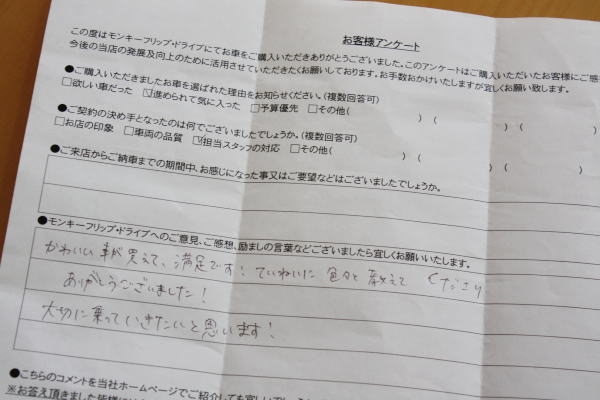 お客様アンケート
この度はモンキーフリップ・ドライブにてお車をご購入いただきありがとうございました。このアンケートはご購入いただいたお客様にご感
今後の当店の発展及び向上のために活用させていただきたくお願いしております。お手数おかけいたしますが宜しくお願い致します。
●ご購入いただきましたお車を選ばれた理由をお知らせください。(複数回答可)
□欲しい車だった ☑進められて気に入った □予算優先 □その他( ) ( ) ( )
●ご契約の決め手となったのは何でございましたでしょうか。(複数回答可)
□お店の印象 □車両の品質 ☑担当スタッフの対応 □その他( ) ( ) ( )
●ご来店からご納車までの期間中、お感じになった事又はご要望などはございましたでしょうか。
●モンキーフリップ・ドライブへのご意見、ご感想、励ましの言葉などございましたら宜しくお願いいたします。
かわいい車が買えて、満足です! ていねいに 色々と 教えて くださり
ありがとうございました!
大切に乗っていきたいと思います!
●こちらのコメントを当社ホームページでご紹介しても宜しいでしょ
※お答え頂きました皆様には